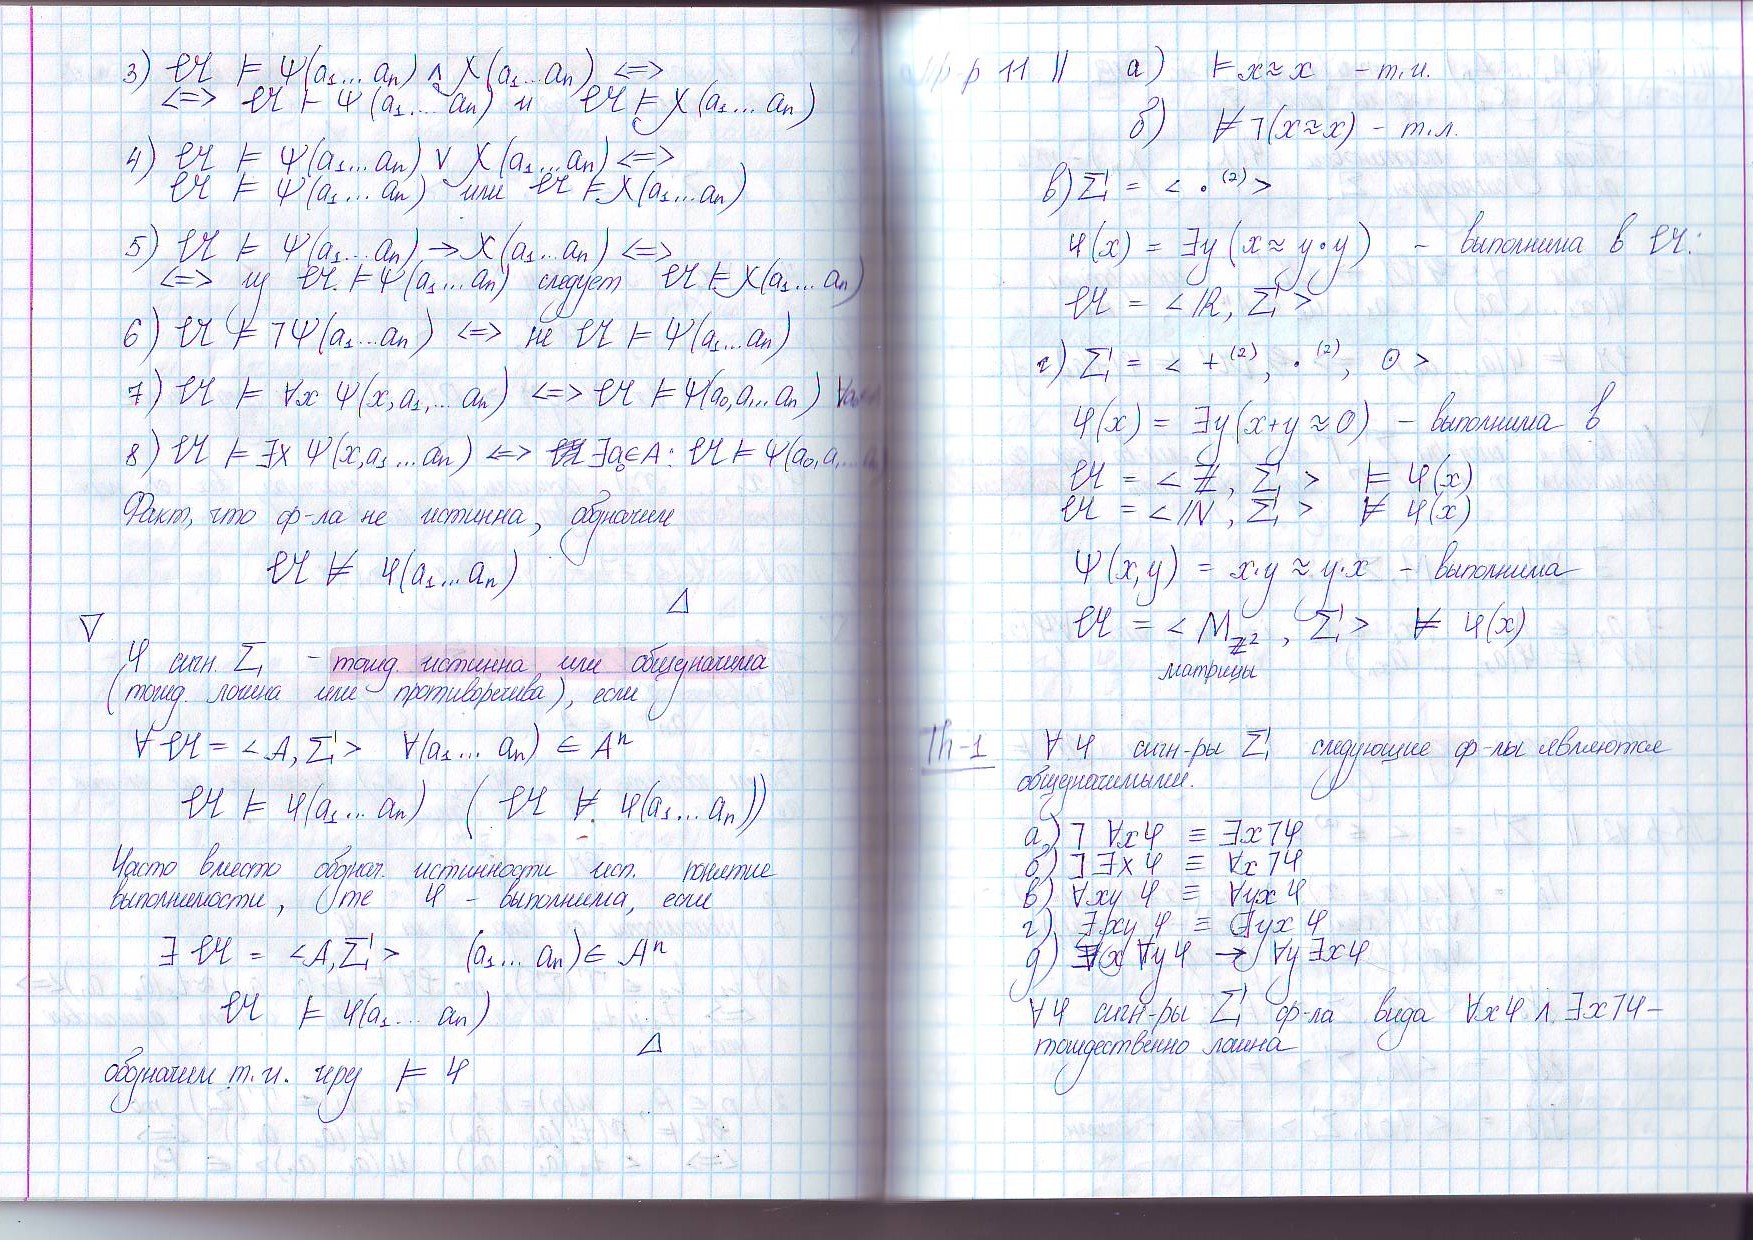 3) 𝔄 ⊨ Ψ(a₁...aₙ) ∧ X(a₁...aₙ) <=>
<=> 𝔄 ⊨ Ψ(a₁...aₙ) и 𝔄 ⊨ X(a₁...aₙ)
4) 𝔄 ⊨ Ψ(a₁...aₙ) ∨ X(a₁...aₙ) <=>
𝔄 ⊨ Ψ(a₁...aₙ) или 𝔄 ⊨ X(a₁...aₙ)
5) 𝔄 ⊨ Ψ(a₁...aₙ) → X(a₁...aₙ) <=>
<=> из 𝔄 ⊨ Ψ(a₁...aₙ) следует 𝔄 ⊨ X(a₁...aₙ)
6) 𝔄 ⊨ ¬Ψ(a₁...aₙ) <=> не 𝔄 ⊨ Ψ(a₁...aₙ)
7) 𝔄 ⊨ ∀x Ψ(x,a₁,...aₙ) <=> 𝔄 ⊨ Ψ(a₀,a...aₙ) ∀a₀
8) 𝔄 ⊨ ∃x Ψ(x,a₁...aₙ) <=> ∃a₀∈A: 𝔄 ⊨ Ψ(a₀,a,...
Факт, что ф-ла не истинна, обозначим
𝔄 ⊭ φ(a₁...aₙ)
Δ
∇
φ сигн. Σ₁ - тожд. истинна или общезначима
(тожд. ложна или противоречива), если
∀ 𝔄 = <A, Σ> ∀(a₁...aₙ) ∈ Aⁿ
𝔄 ⊨ φ(a₁...aₙ) (𝔄 ⊭ φ(a₁...aₙ))
Часто вместо обознач. истинности исп. понятие
выполнимости, φ - выполнима, если
∃ 𝔄 = <A, Σ> (a₁...aₙ) ∈ Aⁿ
𝔄 ⊨ φ(a₁...aₙ)
Δ
обозначим т.и. через ⊨ φ
Пр-р 11 || а) ⊨ x≈x - т.и.
б) ⊭ ¬(x≈x) - т.л.
в) Σ = < ·⁽²⁾ >
φ(x) = ∃y(x≈y·y) - выполнима в 𝔄:
𝔄 = <ℝ, Σ>
г) Σ = < +⁽²⁾, ·⁽²⁾, 0 >
φ(x) = ∃y(x+y≈0) - выполнима в
𝔄 = <ℤ, Σ> ⊨ φ(x)
𝔄 = <ℕ, Σ> ⊭ φ(x)
Ψ(x,y) = x·y≈y·x - выполнима
𝔄 = <M_ℤ², Σ> ⊭ φ(x)
матрицы
Th-1 ∀φ сигн-ры Σ следующие ф-лы являются
общезначимыми.
а) ¬∀xφ ≡ ∃x¬φ
б) ¬∃xφ ≡ ∀x¬φ
в) ∀xy φ ≡ ∀yx φ
г) ∃xy φ ≡ ∃yx φ
д) ∃x ∀yφ → ∀y ∃xφ
∀φ сигн-ры Σ ф-ла вида ∀xφ ∧ ∃x¬φ -
тождественно ложна